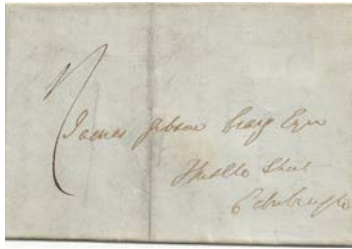 James Gibson Craig Esqr
Thistle Street
Edinburgh